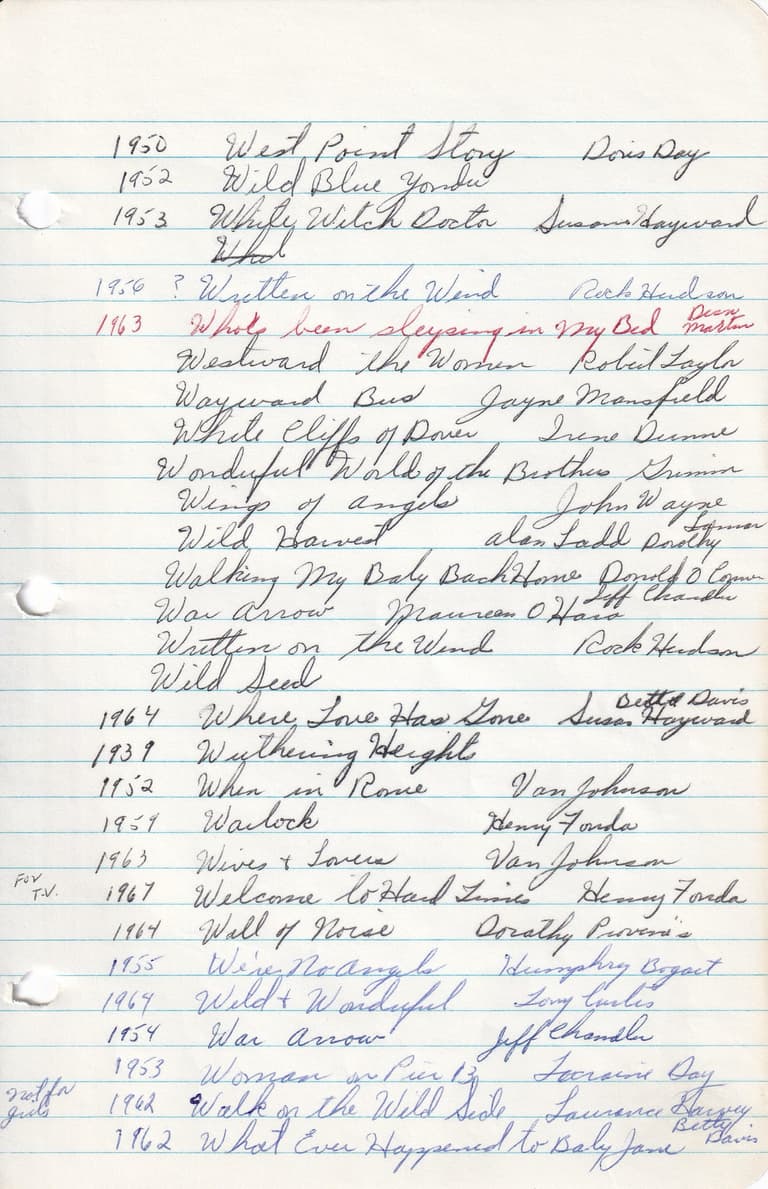 1950 West Point Story Doris Day
1952 Wild Blue Yonder
1953 White Witch Doctor Susan Hayward
1956 ? Written on the Wind Rock Hudson
1963 Who's been sleeping in My Bed Dean Martin
Westward the Women Robert Taylor
Wayward Bus Jayne Mansfield
White Cliffs of Dover Irene Dunne
Wonderful World of the Brothers Grimm
Wings of Angels John Wayne
Wild Harvest Alan Ladd Dorothy Lamour
Walking My Baby Back Home Donald O Connor
War Arrow Maureen O Hara Jeff Chandler
Written on the Wind Rock Hudson
Wild Seed
1964 Where Love Has Gone Susan Hayward Bette Davis
1939 Wuthering Heights
1952 When in Rome Van Johnson
1959 Warlock Henry Fonda
1963 Wives + Lovers Van Johnson
For T.V. 1967 Welcome to Hard Times Henry Fonda
1964 Wall of Noise Dorothy
1955 We're No Angels Humphrey Bogart
1964 Wild + Wonderful Tony Curtis
1954 War Arrow Jeff Chandler
1953 Woman on Pier 13 Laraine Day
not for girls 1962 Walk on the Wild Side Laurence Harvey
1962 What Ever Happened to Baby Jane Betty Davis